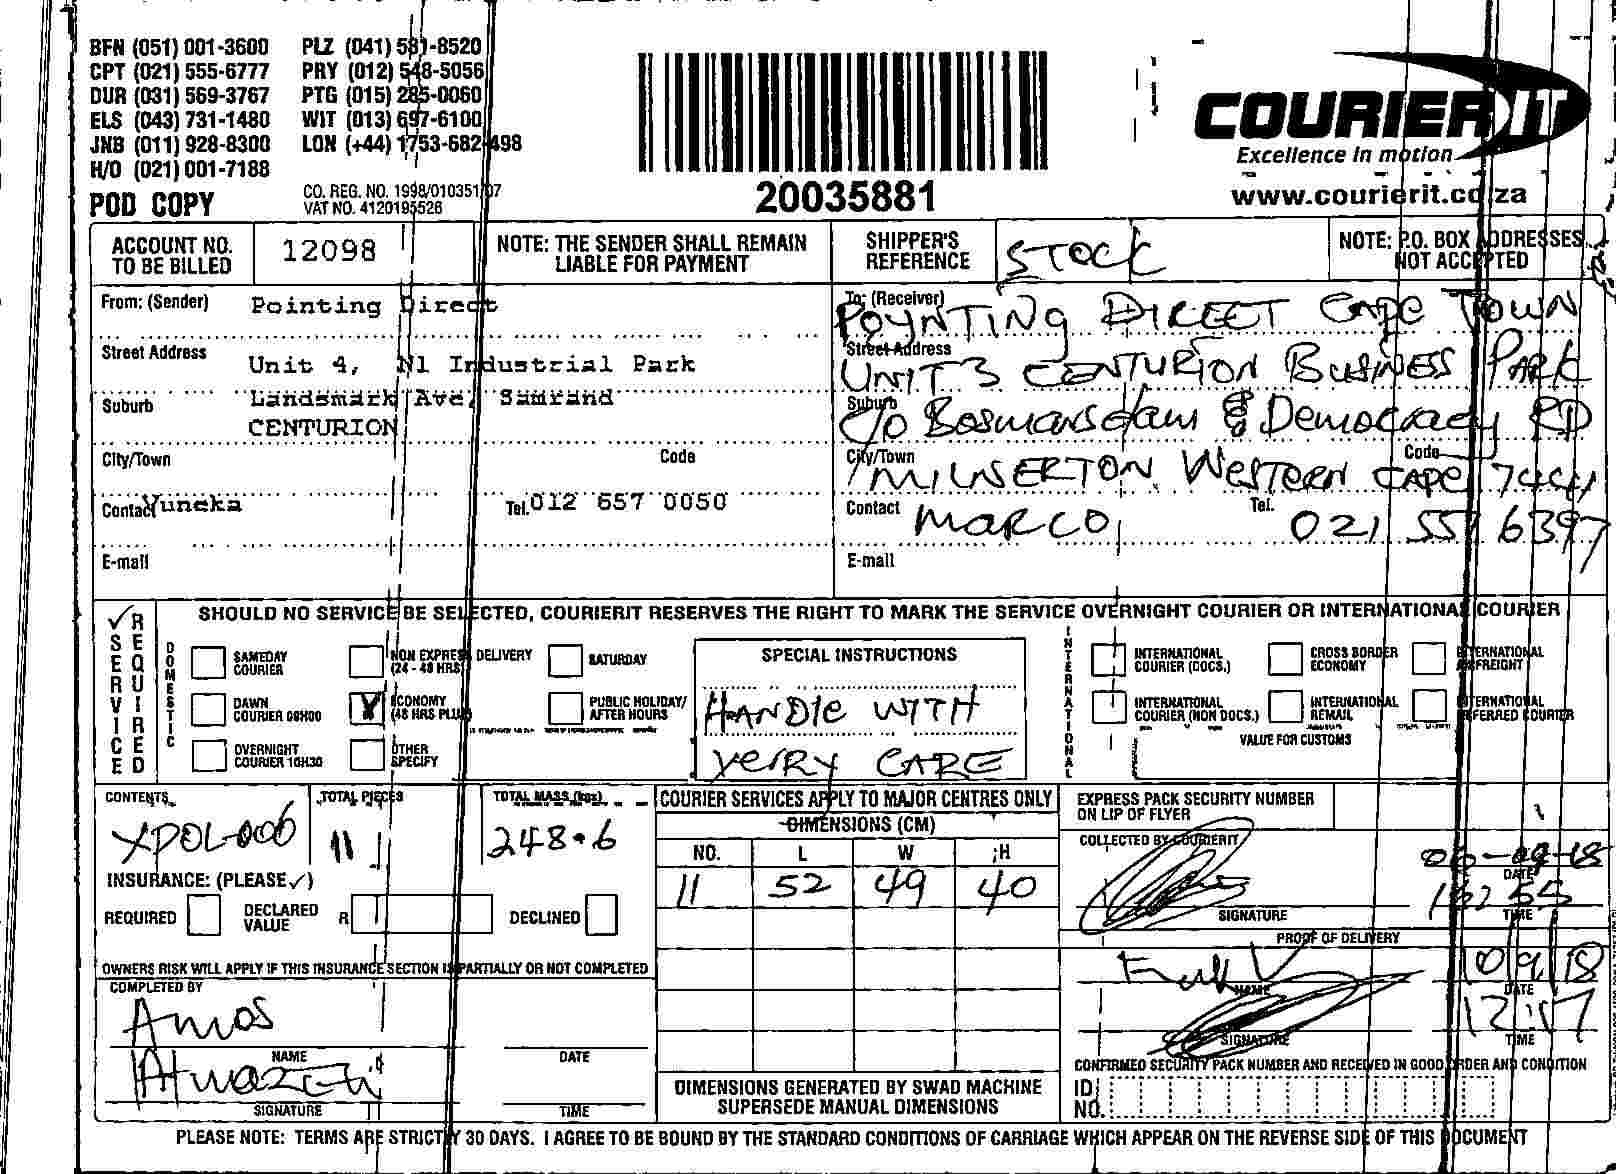 BFN (051) 001-3600 PLZ (041) 581-8520
CPT (021) 555-6777 PRY (012) 548-5056
DUR (031) 569-3767 PTG (015) 285-0060
ELS (043) 731-1480 WIT (013) 697-6100
JNB (011) 928-8300 LON (+44) 1753-682-498
H/O (021) 001-7188
POD COPY
CO. REG. NO. 1998/010351/07
VAT NO. 4120195526
20035881
COURIER IT
Excellence in motion
www.courierit.co.za
ACCOUNT NO. TO BE BILLED 12098
NOTE: THE SENDER SHALL REMAIN LIABLE FOR PAYMENT
SHIPPER'S REFERENCE STOCK
NOTE: P.O. BOX ADDRESSES NOT ACCEPTED
From: (Sender) Pointing Direct
Street Address Unit 4, N1 Industrial Park
Suburb Landsmark Ave, Samrand
CENTURION
City/Town Code
Contact Yuneka Tel. 012 657 0050
E-mail
To: (Receiver) POYNTING DIRECT CAPE TOWN
Street Address UNIT 3 CENTURION BUSINESS PARK
Suburb C/O Bosmansdam & Democracy RD
City/Town MILNERTON WESTERN CAPE Code 7441
Contact MARCO Tel. 021 551 6397
E-mail
SERVICE REQUIRED
SHOULD NO SERVICE BE SELECTED, COURIERIT RESERVES THE RIGHT TO MARK THE SERVICE OVERNIGHT COURIER OR INTERNATIONAL COURIER
DOMESTIC
SAMEDAY COURIER
NON EXPRESS DELIVERY (24 - 48 HRS)
SATURDAY
DAWN COURIER 08H00
ECONOMY (48 HRS PLUS)
PUBLIC HOLIDAY/ AFTER HOURS
OVERNIGHT COURIER 10H30
OTHER SPECIFY
SPECIAL INSTRUCTIONS
HANDLE WITH
VERRY CARE
INTERNATIONAL
INTERNATIONAL COURIER (DOCS.)
CROSS BORDER ECONOMY
INTERNATIONAL AIRFREIGHT
INTERNATIONAL COURIER (NON DOCS.)
INTERNATIONAL REMAIL
INTERNATIONAL DEFERRED COURIER
VALUE FOR CUSTOMS
CONTENTS XPOL-006
TOTAL PIECES 11
TOTAL MASS (kgs) 248.6
INSURANCE: (PLEASE ✓)
REQUIRED DECLARED VALUE R DECLINED
OWNERS RISK WILL APPLY IF THIS INSURANCE SECTION IS PARTIALLY OR NOT COMPLETED
COMPLETED BY
Amos
NAME DATE
SIGNATURE TIME
COURIER SERVICES APPLY TO MAJOR CENTRES ONLY
DIMENSIONS (CM)
NO. L W H
11 52 49 40
DIMENSIONS GENERATED BY SWAD MACHINE
SUPERSEDE MANUAL DIMENSIONS
EXPRESS PACK SECURITY NUMBER
ON LIP OF FLYER
COLLECTED BY COURIERIT
06-09-18
DATE
SIGNATURE TIME
PROOF OF DELIVERY
10/9/18
NAME DATE
12:17
SIGNATURE TIME
CONFIRMED SECURITY PACK NUMBER AND RECEIVED IN GOOD ORDER AND CONDITION
ID NO.
PLEASE NOTE: TERMS ARE STRICTLY 30 DAYS. I AGREE TO BE BOUND BY THE STANDARD CONDITIONS OF CARRIAGE WHICH APPEAR ON THE REVERSE SIDE OF THIS DOCUMENT